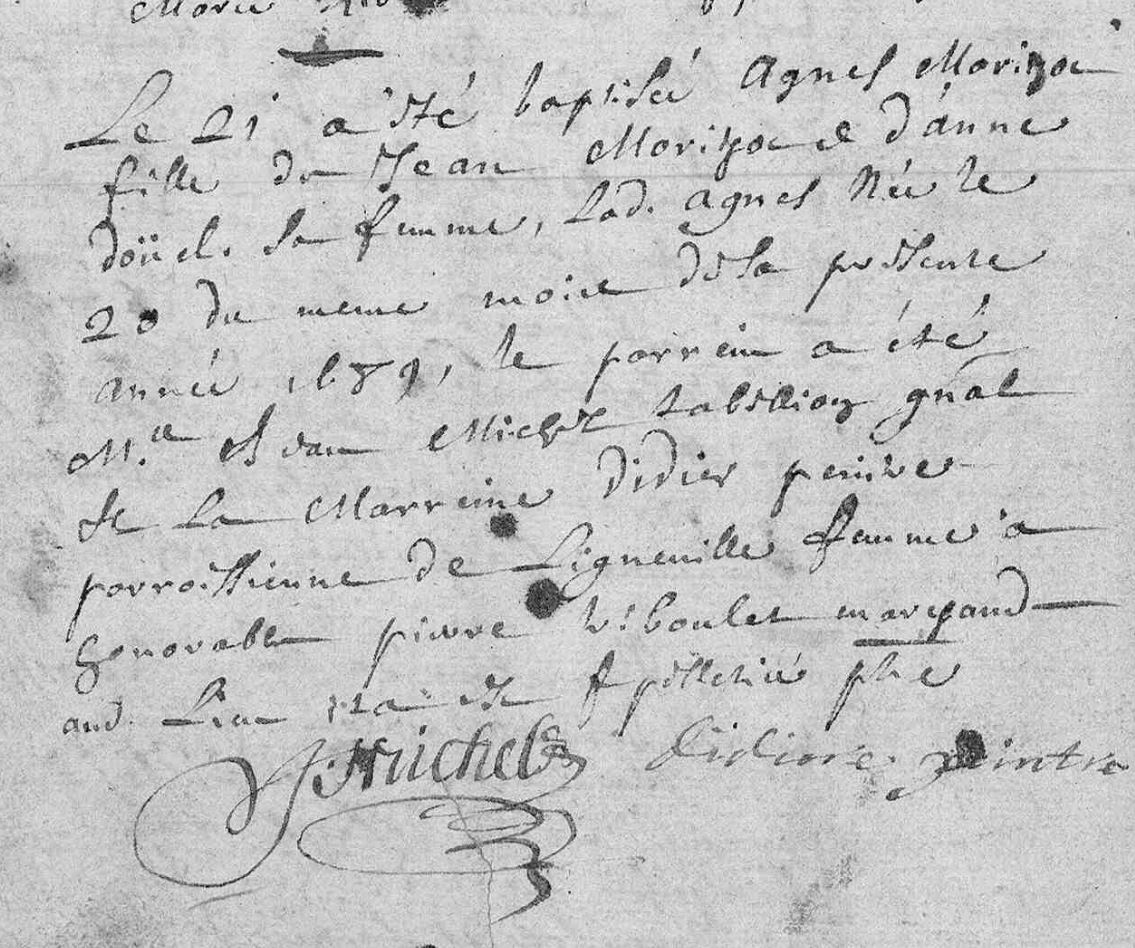 Marie
Le 21 a été baptisée Agnes Morizot
fille de Jean Morizot et d'anne
doüel. Sa femme, Lad. agnes Née le
20 du meme mois de la presente
année 1689, le parrein a été
M.re Jean Michel tabellion gñal
et La Marreine Didier peintre
parroissienne de Ligneuille femme a
honorable pierre marchand
aud. Lieu ita est pelletié pbr
J. Michel Didiere peintre